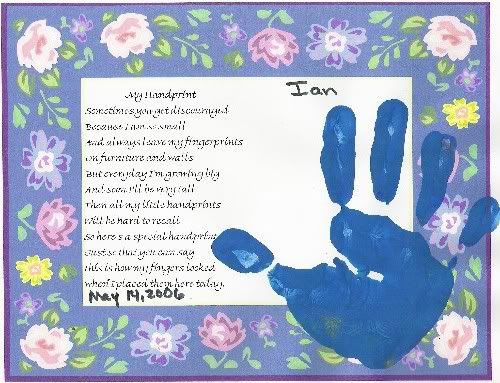 My Handprint
Ian
Sometimes you get discouraged
Because I am so small
And always leave my fingerprints
On furniture and walls
But everyday I'm growing big
And soon I'll be very tall
Then all my little handprints
Will be hard to recall
So here's a special handprint
Just so that you can say
This is how my fingers looked
when I placed them here today.
May 14, 2006